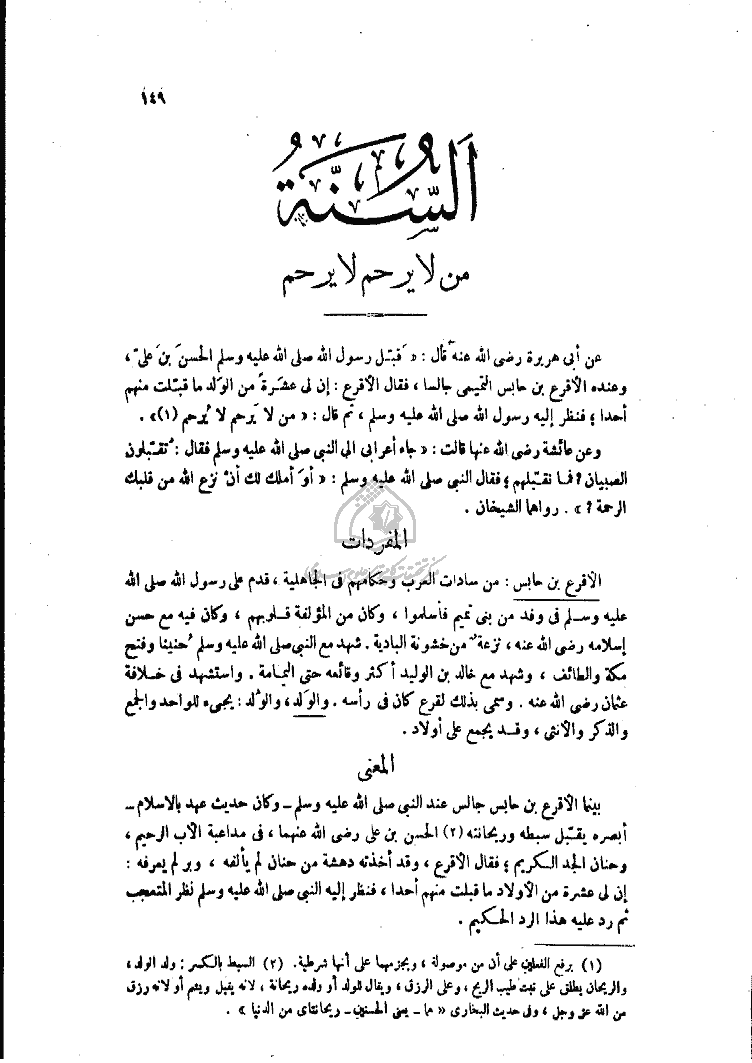 ١٤٩
السُّنَّةُ
من لا يرحم لا يرحم
عن أبى هريرة رضى الله عنه قال : « قبّل رسول الله صلى الله عليه وسلم الحسن بن على ،
وعنده الأقرع بن حابس التميمى جالسا ، فقال الأقرع : إن لى عشرة من الولد ما قبّلت منهم
أحدا ؛ فنظر إليه رسول الله صلى الله عليه وسلم ، ثم قال : « من لا يَرحم لا يُرحم (١) » .
وعن عائشة رضى الله عنها قالت : « جاء أعرابى الى النبي صلى الله عليه وسلم فقال : تُقبّلون
الصبيان ؟ فما نقبّلهم ؛ فقال النبي صلى الله عليه وسلم : « أوَ أملك لك أنْ نزع الله من قلبك
الرحمة ؟ » . رواهما الشيخان .
المفردات
الأقرع بن حابس : من سادات العرب وحكامهم فى الجاهلية ، قدم على رسول الله صلى الله
عليه وسلم فى وفد من بنى تميم فأسلموا ، وكان من المؤلفة قلوبهم ، وكان فيه مع حسن
إسلامه رضى الله عنه ، نزعة من خشونة البادية . شهد مع النبي صلى الله عليه وسلم حُنينا وفتح
مكة والطائف ، وشهد مع خالد بن الوليد أكثر وقائعه حتى اليمامة . واستشهد فى خلافة
عثمان رضى الله عنه . وسمى بذلك لقرع كان فى رأسه . والوَلد ، والوُلد : يجىء للواحد والجمع
والذكر والأنثى ، وقد يجمع على أولاد .
المعنى
بينما الأقرع بن حابس جالس عند النبي صلى الله عليه وسلم – وكان حديث عهد بالاسلام –
أبصره يقبّل سبطه وريحانته (٢) الحسن بن على رضى الله عنهما ، فى مداعبة الأب الرحيم ،
وحنان الجد الكريم ؛ فقال الأقرع ، وقد أخذته دهشة من حنان لم يألفه ، وبر لم يعرفه :
إن لى عشرة من الأولاد ما قبلت منهم أحدا ، فنظر إليه النبي صلى الله عليه وسلم نظر المتعجب
ثم رد عليه هذا الرد الحكيم .
(١) برفع الفعلين على أن من موصولة ، وبجزمهما على أنها شرطية . (٢) السبط بالكسر : ولد الولد ،
والريحان يطلق على نبت طيب الريح ، وعلى الرزق ، ويقال للولد أو ولده ريحانة ، لانه يقبل ويشم أو لانه رزق
من الله عز وجل ، وفى حديث البخارى « هما – يعنى الحسنين – ريحانتاى من الدنيا » .